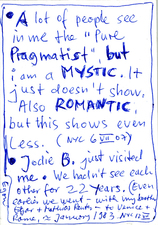 • A lot of people see
in me the "Pure
Pragmatist", but
i am a MYSTIC. It
just doesn't show.
Also ROMANTIC,
but this shows even
less. (NYC 6 VII 07)
• Jodie B. just visited
me. We hadn't seen each
other for 22 years. (Even
earlier we went - with my
+ - to Venice &
Rome, ≈ January 1983 NYC 12 VI